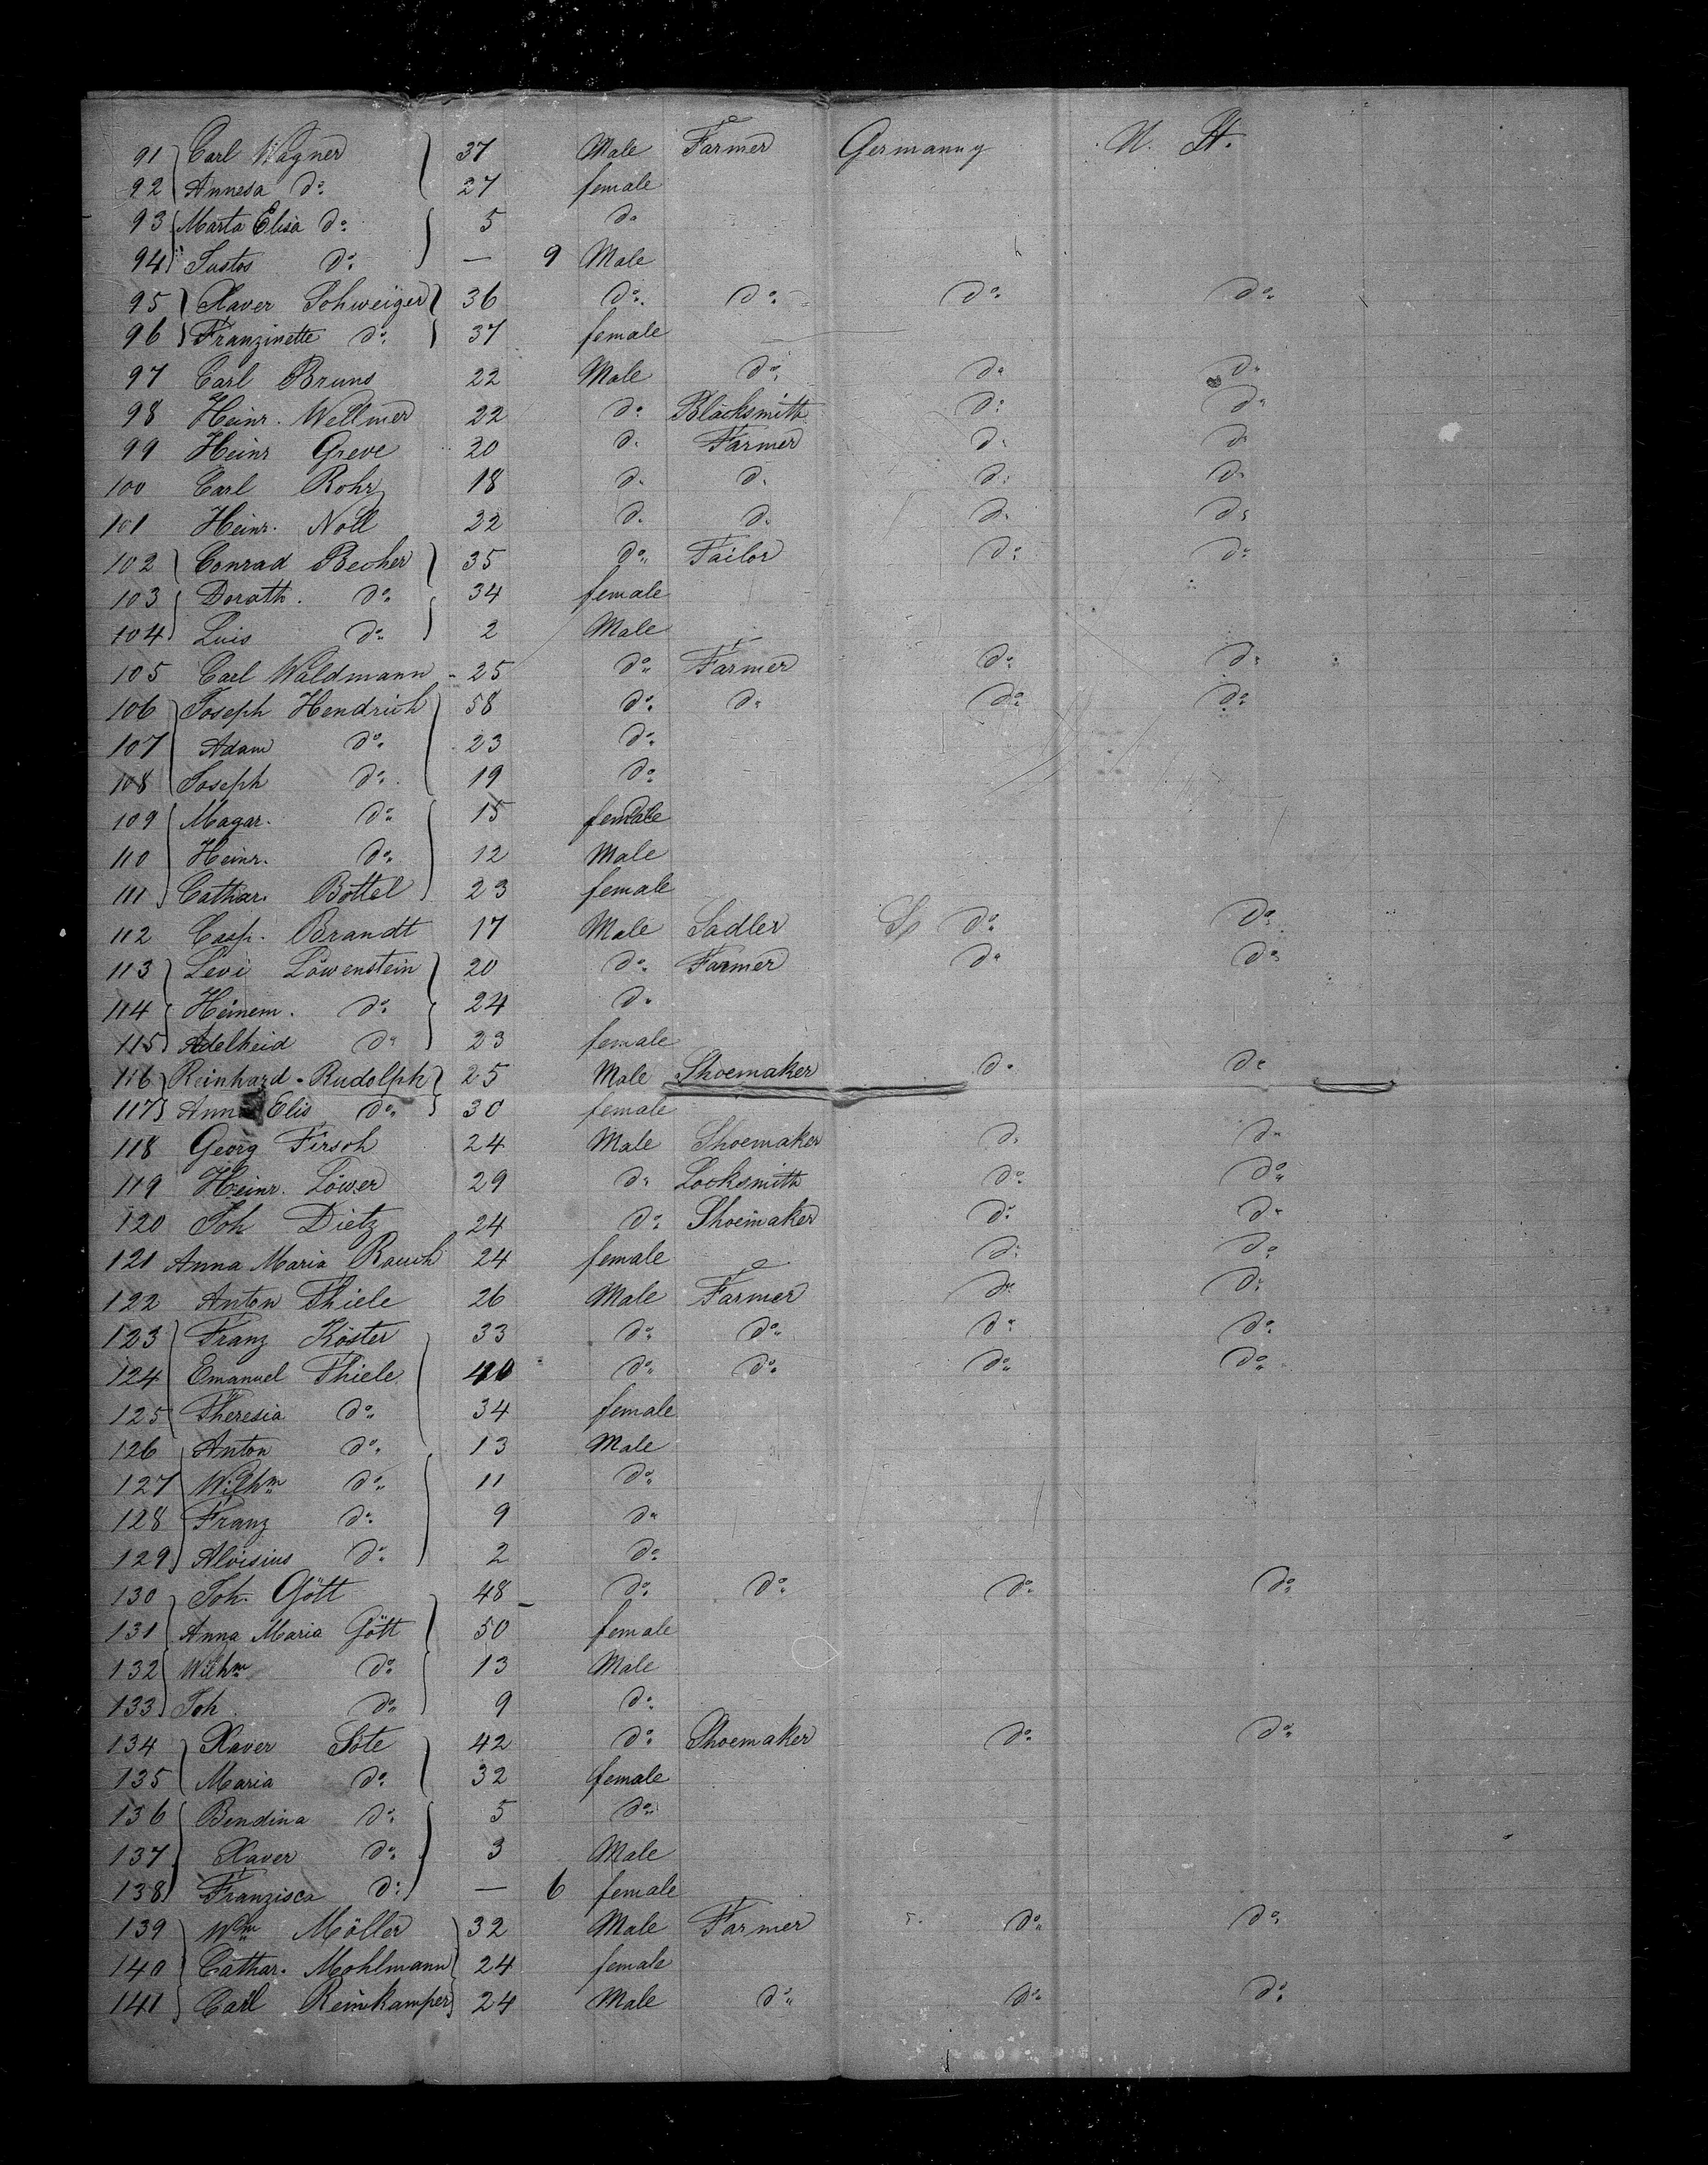 91 Carl Wagner 37 Male Farmer Germanny U. St.
92 Annesa do 27 female
93 Marta Elisa do 5 do
94 Justos do — 9 Male
95 Xaver Schweiger 36 do do do do
96 Franzinette do 37 female
97 Carl Bruns 22 Male do do do
98 Heinr. Wellmer 22 do Blacksmith do do
99 Heinr Greve 20 do Farmer do do
100 Carl Rohr 18 do do do do
101 Heinr. Noll 22 do do do do
102 Conrad Becher 35 do Tailor do do
103 Dorath. do 34 female
104 Luis do 2 Male
105 Carl Waldmann 25 do Farmer do do
106 Joseph Hendrich 58 do do do do
107 Adam do 23 do
108 Joseph do 19 do
109 Magar. do 15 female
110 Heinr. do 12 Male
111 Cathar. Bottel 23 female
112 Casp. Brandt 17 Male Sadler do do
113 Levi Löwenstein 20 do Farmer do do
114 Heinem. do 24 do
115 Adelheid do 23 female
116 Reinhard Rudolph 25 Male Shoemaker do do
117 Ann Elis do 30 female
118 Georg Firsch 24 Male Shoemaker do do
119 Heinr. Löwer 29 do Locksmith do do
120 Joh Dietz 24 do Shoemaker do do
121 Anna Maria Rauch 24 female do do
122 Anton Thiele 26 Male Farmer do do
123 Franz Köster 33 do do do do
124 Emanuel Thiele 40 do do do do
125 Theresia do 34 female
126 Anton do 13 Male
127 Wilhm do 11 do
128 Franz do 9 do
129 Aloisius do 2 do
130 Joh. Gött 48 do do do do
131 Anna Maria Gött 50 female
132 Wilhm do 13 Male
133 Joh. do 9 do
134 Xaver Sote 42 do Shoemaker do do
135 Maria do 32 female
136 Bendina do 5 do
137 Xaver do 3 Male
138 Franzisca do — 6 female
139 Wm Möller 32 Male Farmer do do
140 Cathar. Mohlmann 24 female
141 Carl Reinkamper 24 Male do do do